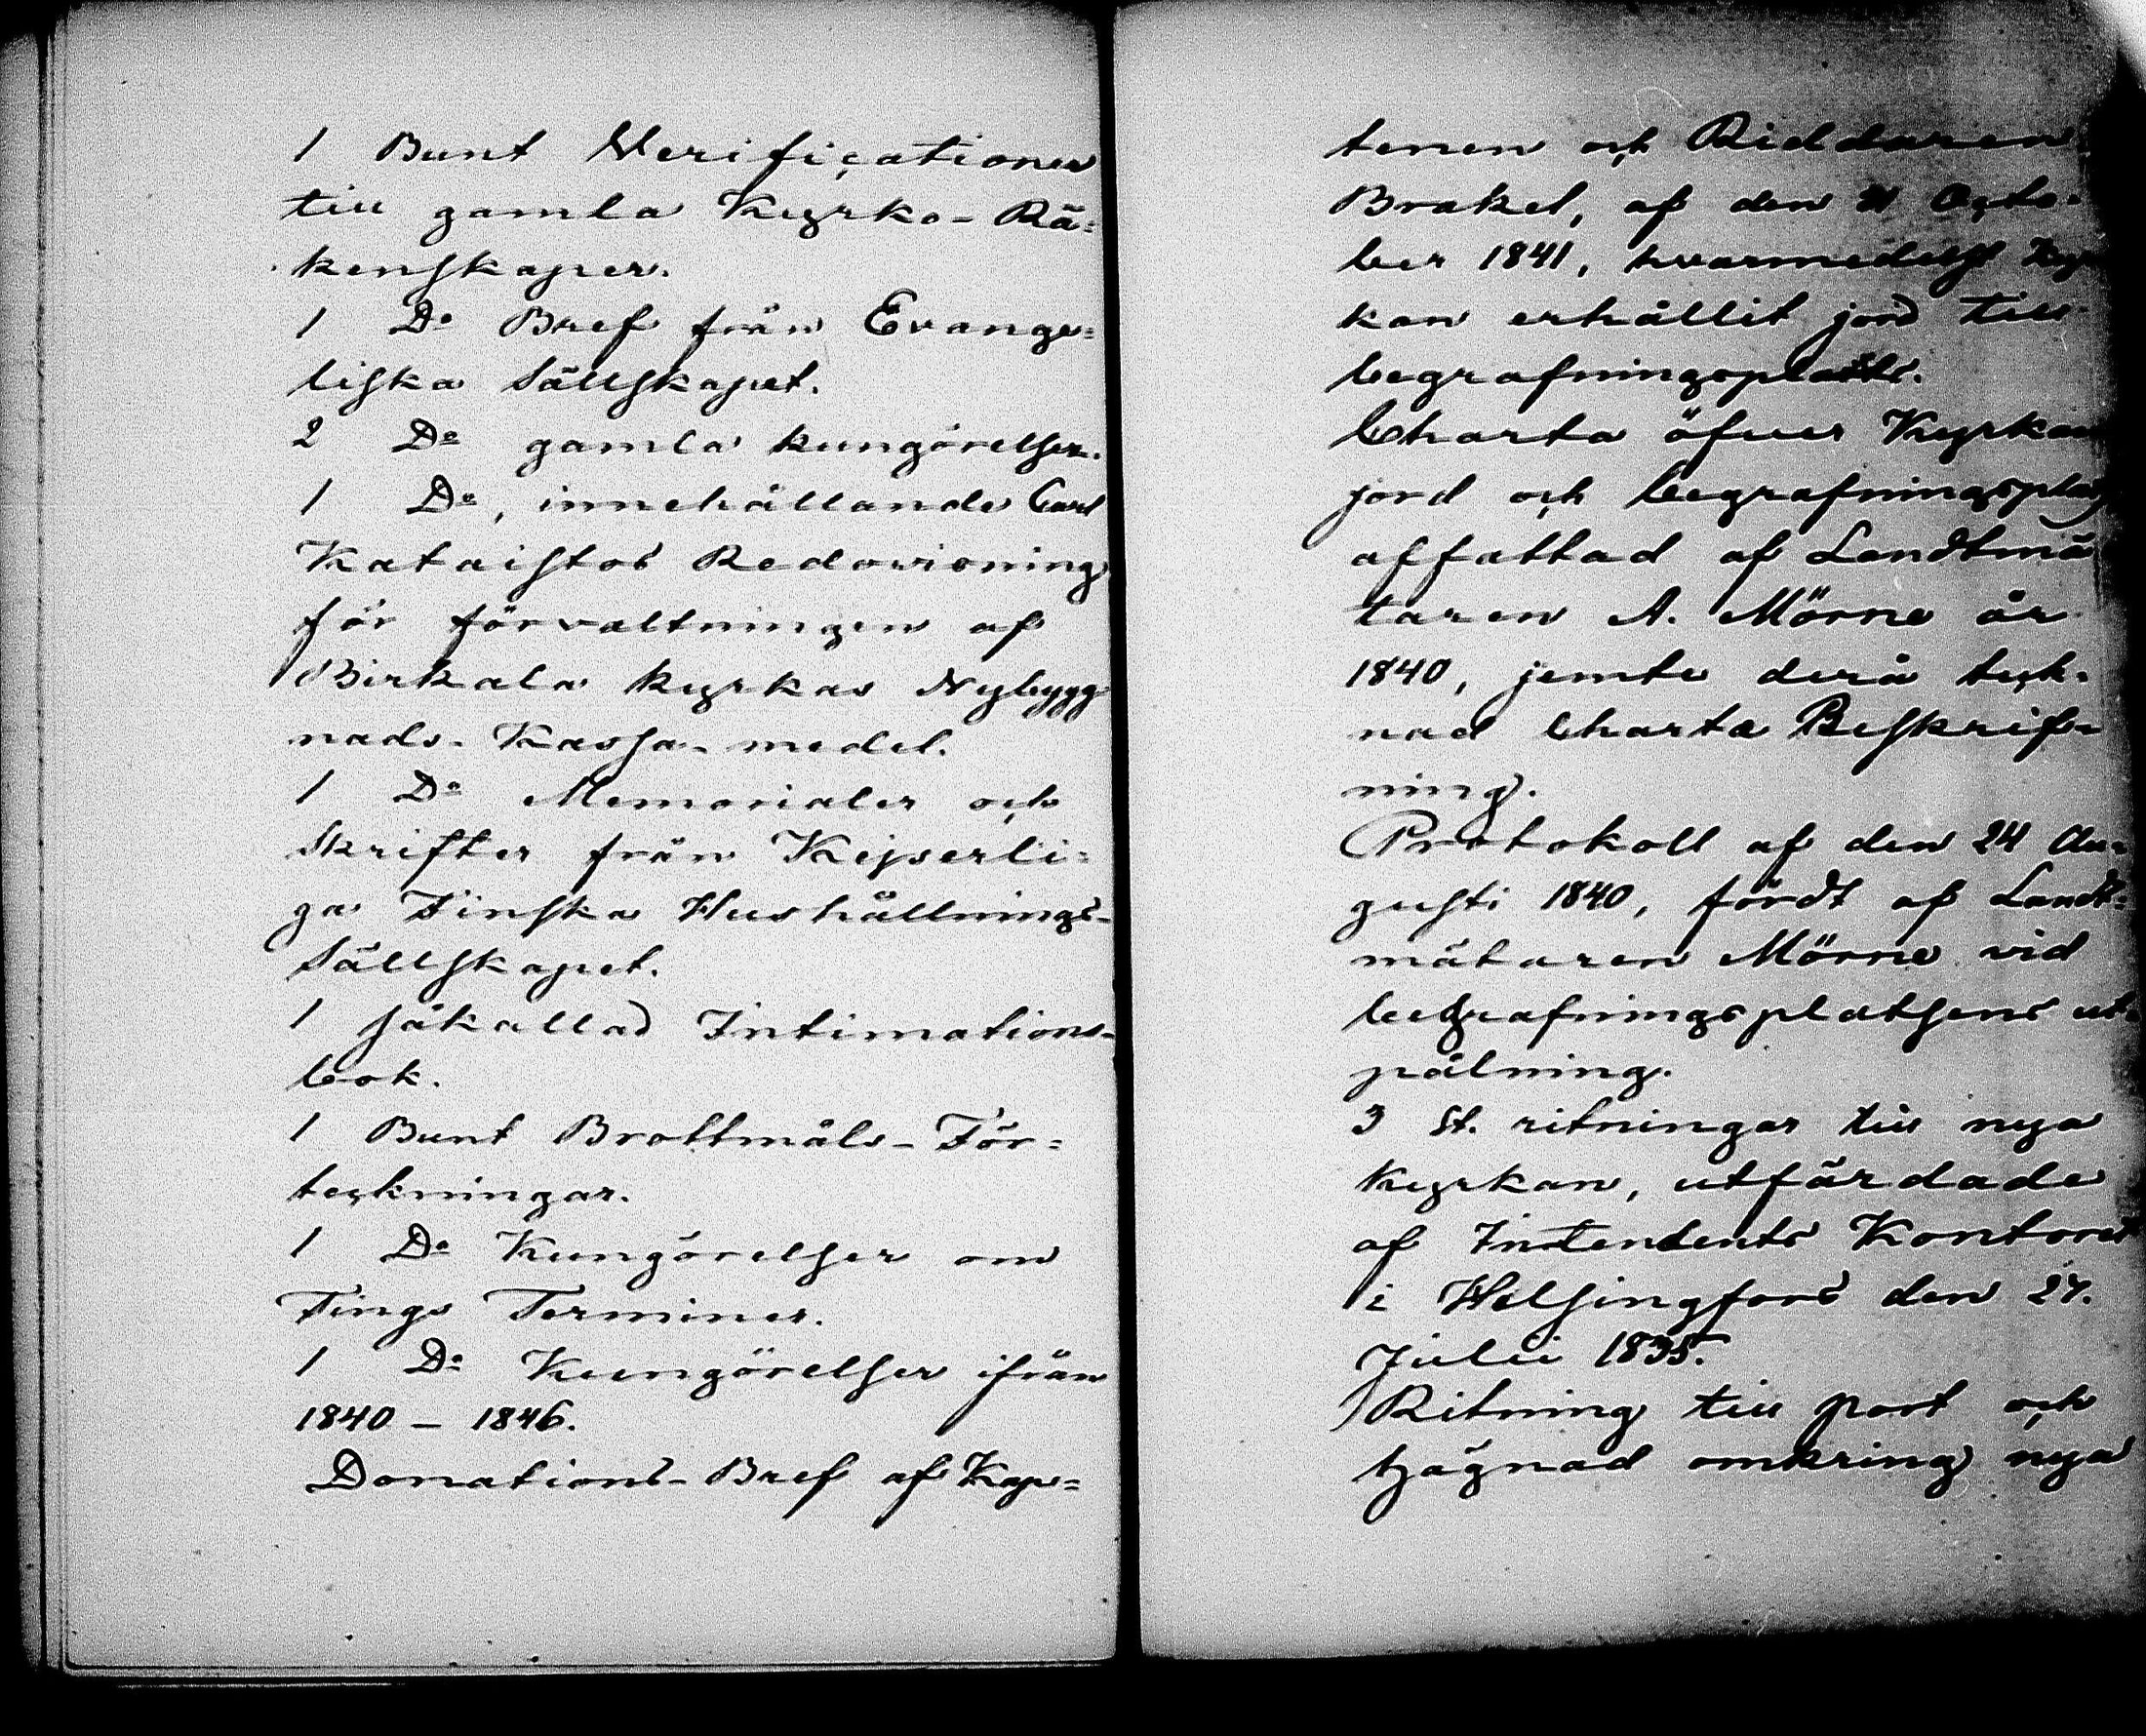 1 Bunt Verificationer
till gamla Kyrko-Rä=
kenskaper.
1 Do Bref från Evange=
liska Sällskapet.
2 Do gamla kungörelser.
1 Do, innehållande Carl
Kataistos Redovisning
för förvaltningen af
Birkala kyrkas Nybygg
nads-Kassa-medel.
1 Do Memorialer och
Skrifter från Kejserli=
ga Finska Hushållnings-
Sällskapet.
1 såkallad Intimations-
bok.
1 Bunt Brottmåls-För=
teckningar.
1 Do Kungörelser om
Tings Terminer.
1 Do Kungörelser ifrån
1840 - 1846.
Donations-Bref af Kap=
tenen och Riddaren
Brakel, af den Octo-
ber 1841, hvarmedelst Kyr
kan erhållit jord till
begrafningsplatts.
Charta öfver Kyrkans
jord och begrafningsplats
affattad af Landtmä
taren A. Mörne år
1840, jemte derå teck-
nad Charta Beskrif-
ning.
Protokoll af den 24 Au-
gusti 1840, fördt af Landt=
mätaren Mörne vid
begrafningsplatsens ut-
pålning.
3 st. ritningar till nya
Kyrkan, utfärdade
af Intendents Kontoret
i Helsingfors den 27.
Julii 1835.
Ritning till port och
hägnad omkring nya